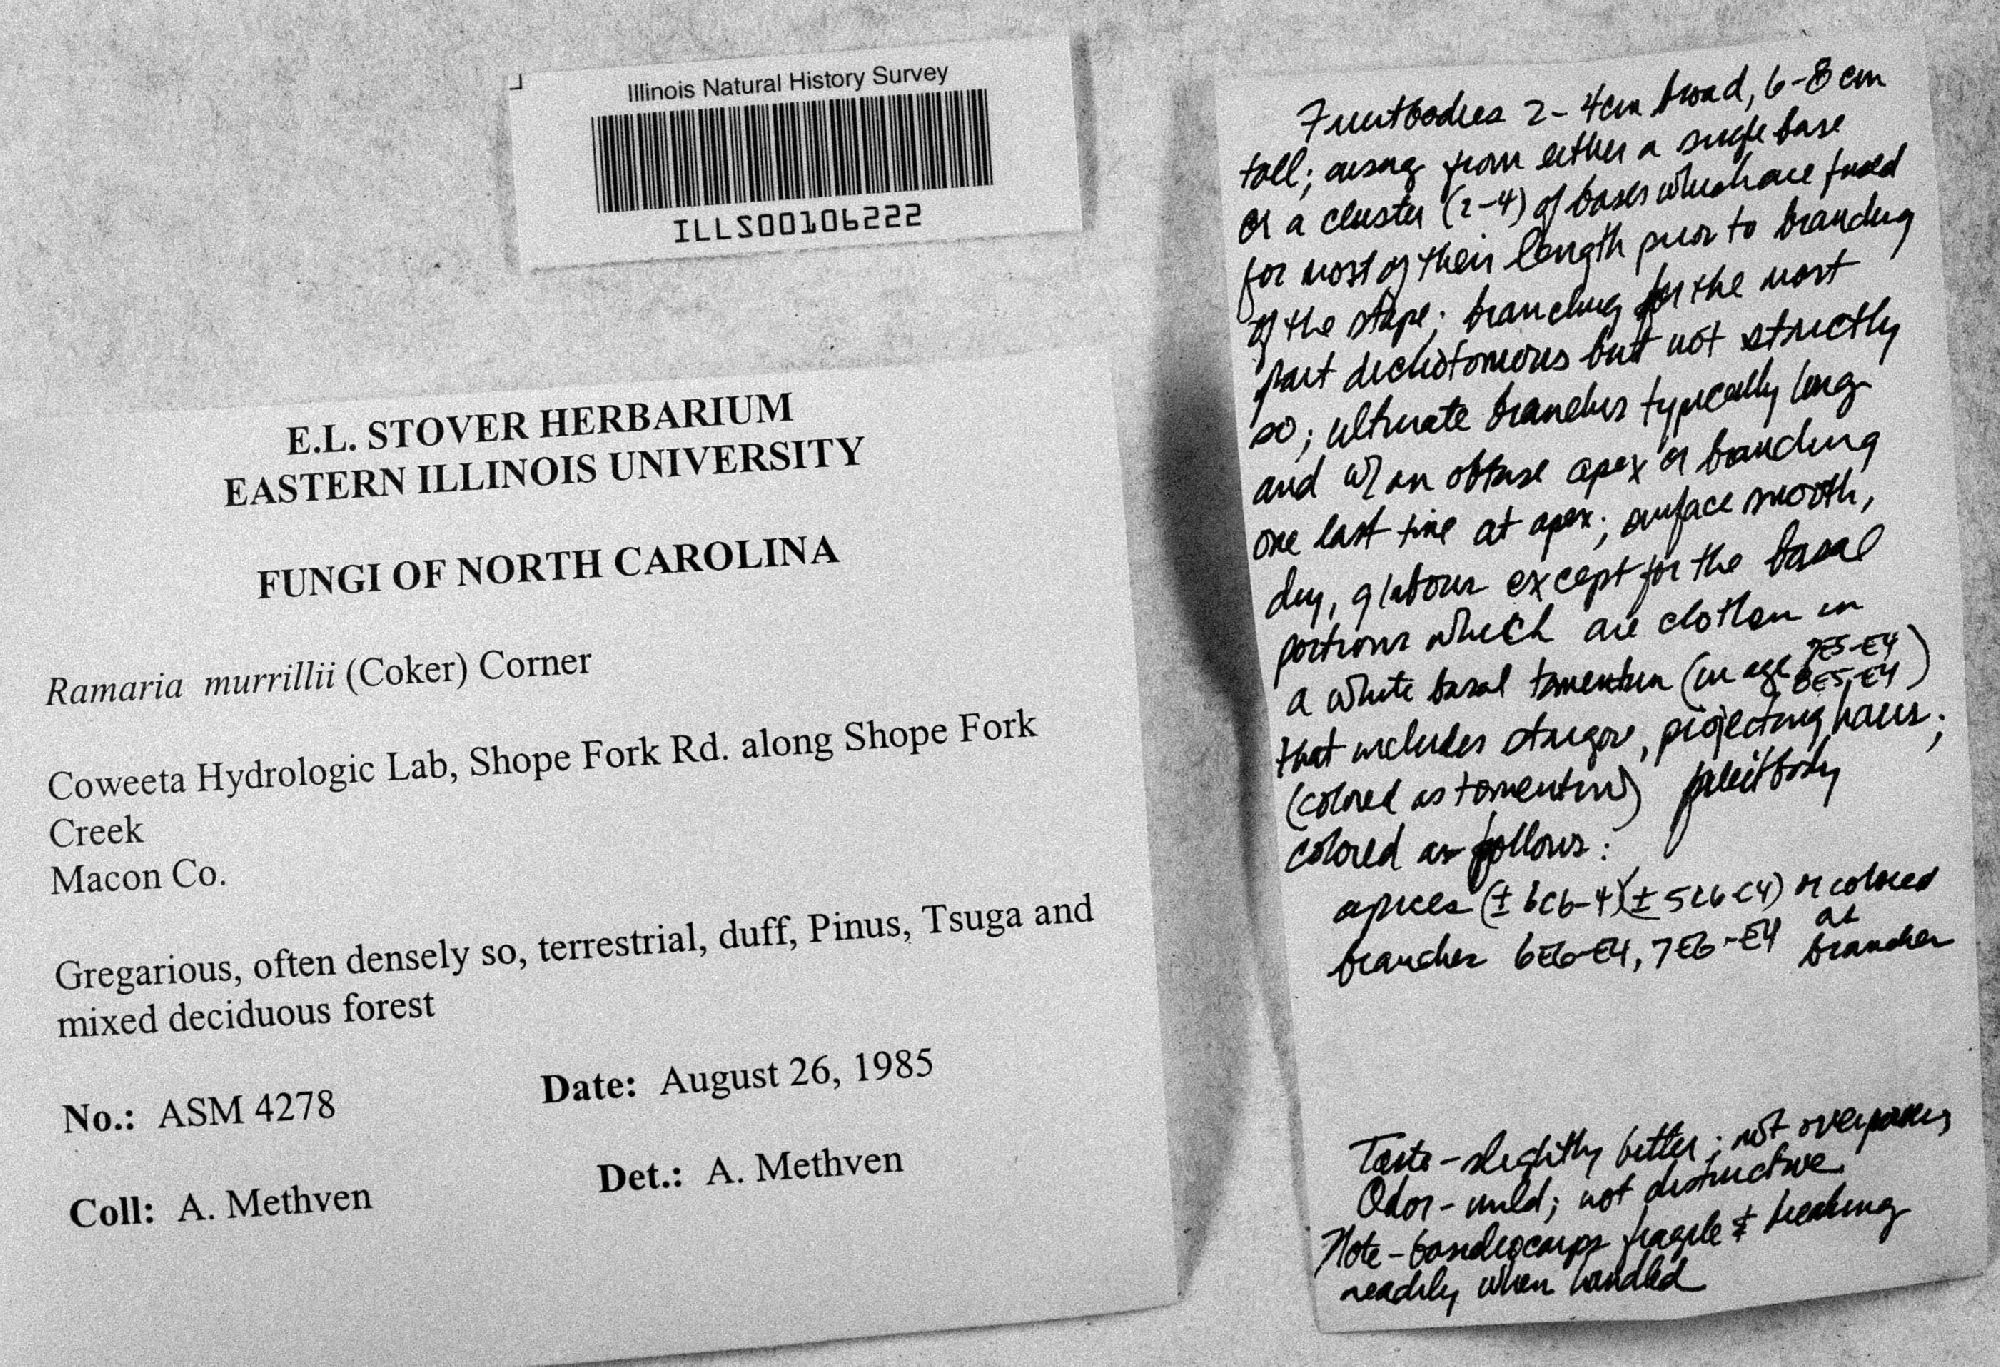 Illinois Natural History Survey
ILLS00106222
E.L. STOVER HERBARIUM
EASTERN ILLINOIS UNIVERSITY
FUNGI OF NORTH CAROLINA
Ramaria murrillii (Coker) Corner
Coweeta Hydrologic Lab, Shope Fork Rd. along Shope Fork
Creek
Macon Co.
Gregarious, often densely so, terrestrial, duff, Pinus, Tsuga and
mixed deciduous forest
No.: ASM 4278 Date: August 26, 1985
Coll: A. Methven Det.: A. Methven
Fruitbodies 2-4cm broad, 6-8cm
tall; arising from either a single base
or a cluster (2-4) of bases which are fused
for most of their length prior to branching
of the stipe; branching for the most
part dichotomous but not strictly
so; ultimate branches typically long
and w/ an obtuse apex or branching
one last time at apex; surface smooth,
dry, glabrous except for the basal
portions which are clothed in
a white basal tomentum (in age 7E5-E4
6E5-E4)
that includes strigose, projecting hairs;
(colored as tomentum) fruitbody
colored as follows:
apices (± 6C6-4)(± 5C6-C4) or colored
as
branches 6E6-E4, 7E6-E4 branches
Taste-slightly bitter; not overpowering
Odor-mild; not distinctive
Note-basidiocarps fragile & breaking
readily when handled